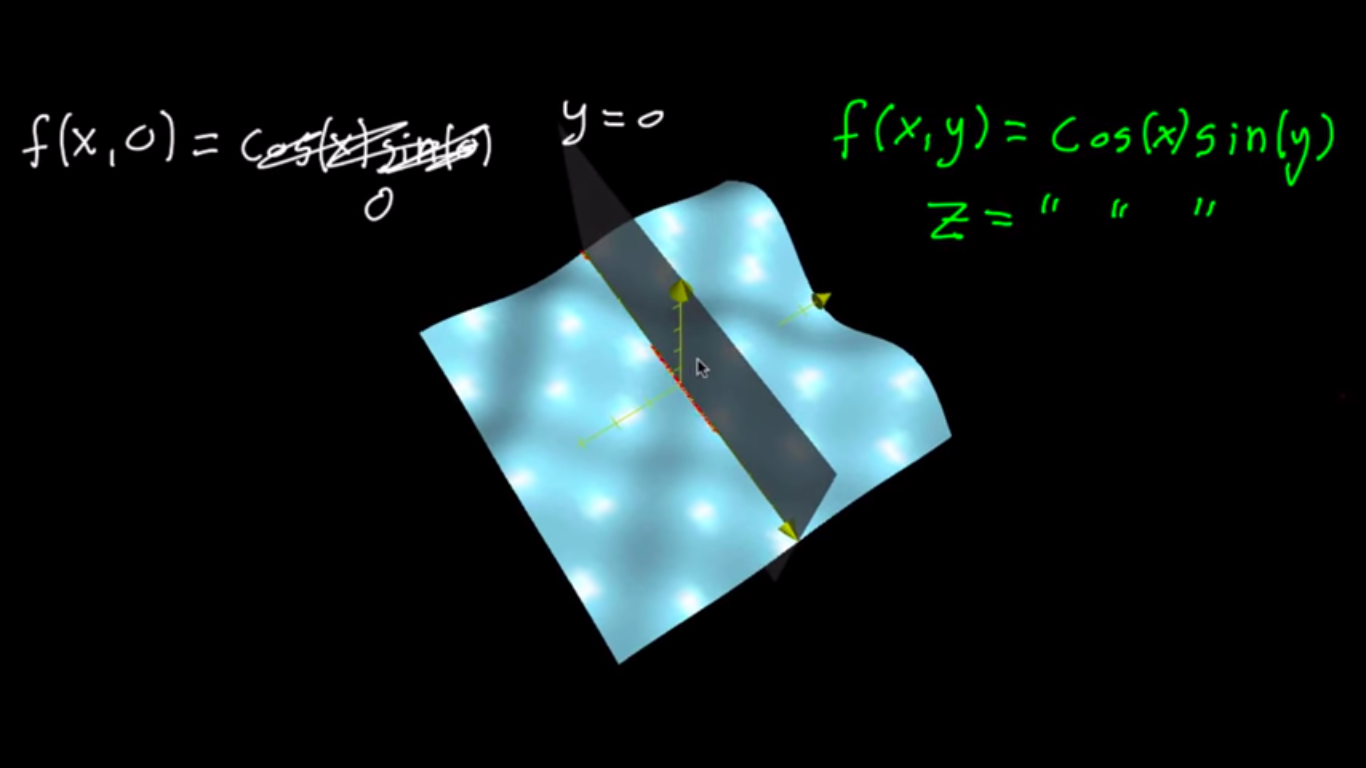 f(x,0) = cos(x)sin(0)
0
y = 0
f(x,y) = cos(x)sin(y)
z = " " "